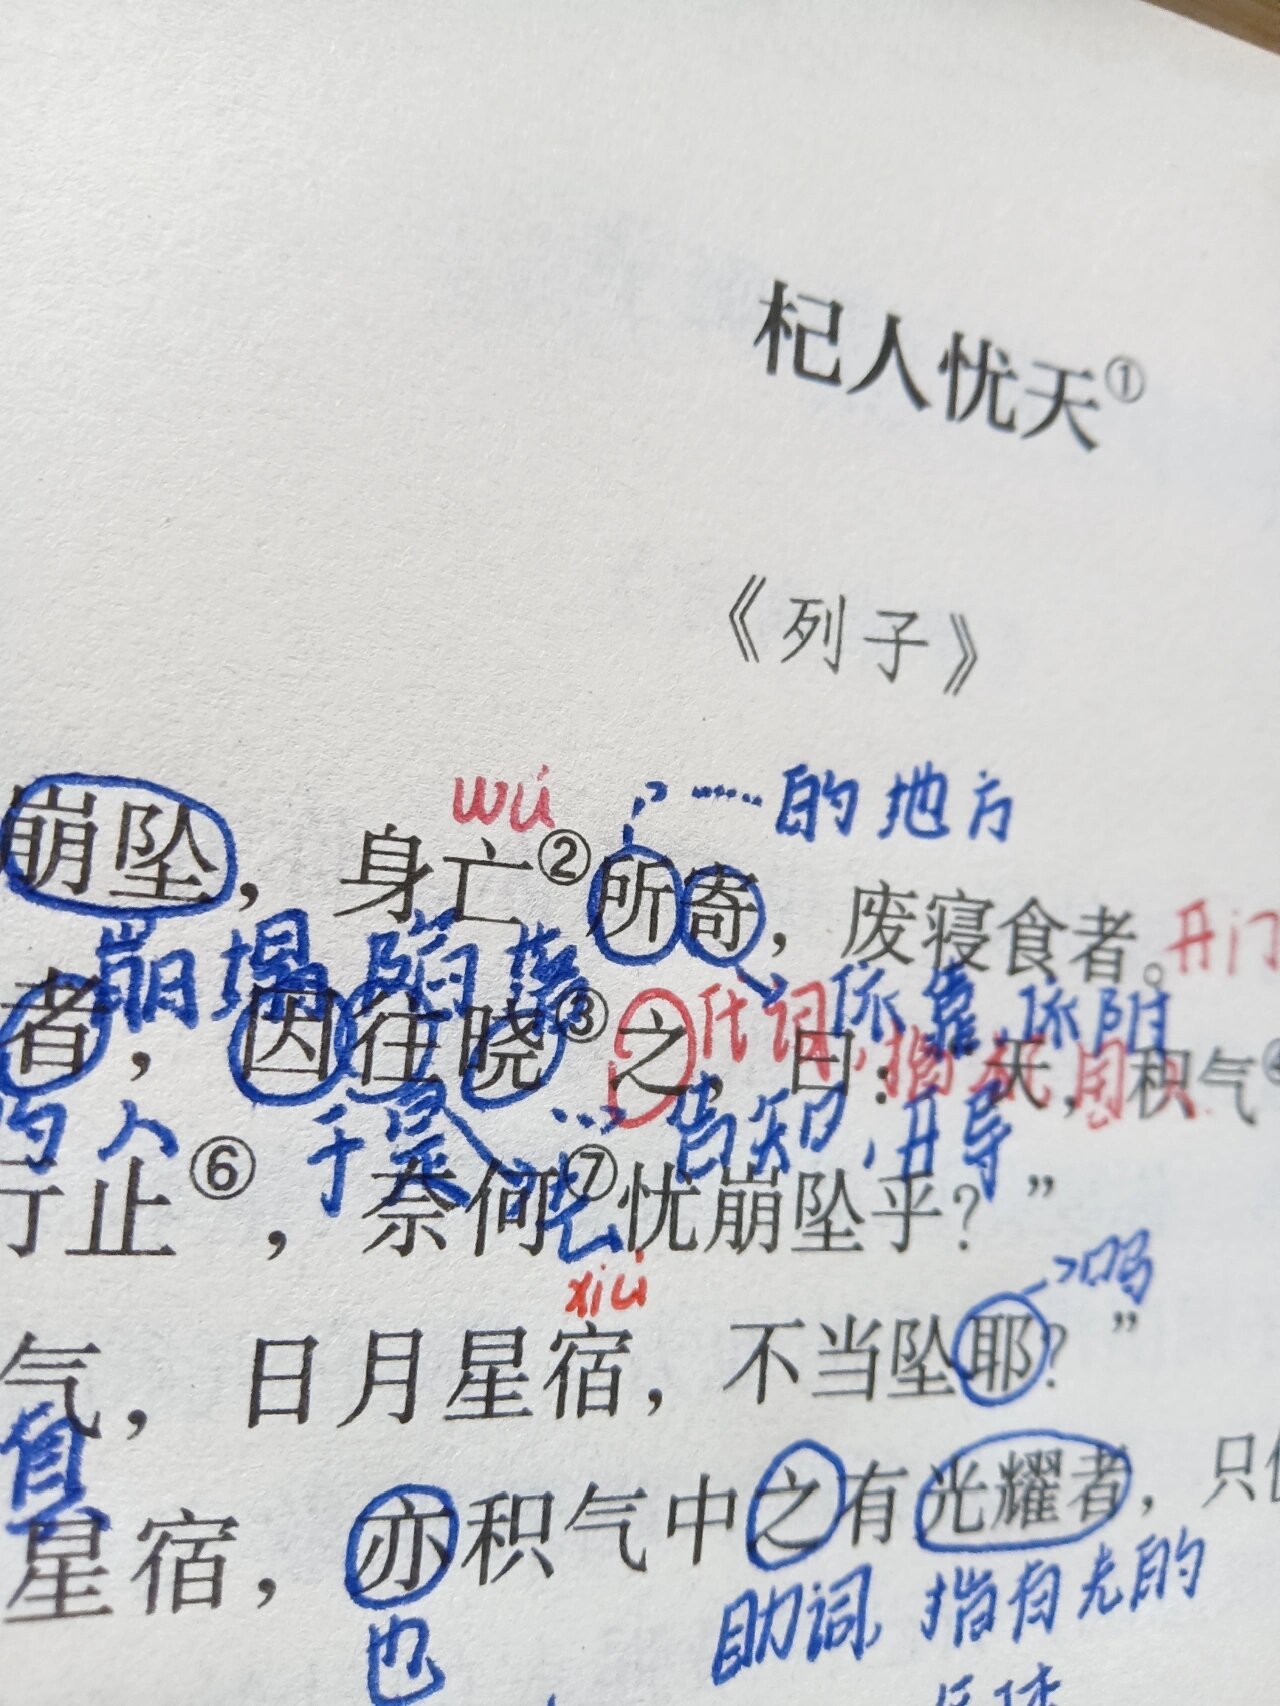 杞人忧天①
《列子》
wú
的地方
崩坠，身亡②所寄，废寝食者。开门
崩塌 陷落 依靠 依附
者，因往晓③之，曰：“天，积气④
代词，指
的人 于是 去 告知，开导
止⑥，奈何⑦忧崩坠乎？”
xiù
吗
气，日月星宿，不当坠耶？”
星宿，亦积气中之有光耀者，只
也 助词 指有光的